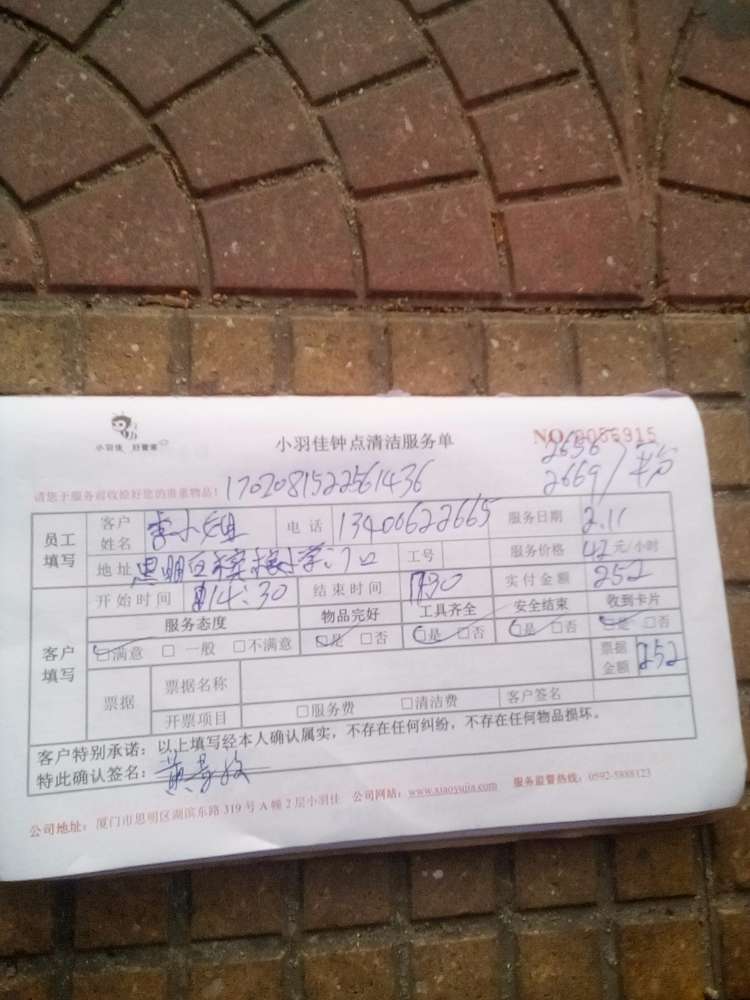 小羽佳 好管家
小羽佳钟点清洁服务单
NO.0056915
2656
2669
请您于服务前收捡好您的贵重物品! 1702081522561436
员工填写 客户姓名 李小姐 电话 13400622665 服务日期 2.11
地址 思明区 小学门口 工号 服务价格 42 元/小时
客户填写 开始时间 14:30 结束时间 1730 实付金额 252
服务态度 物品完好 工具齐全 安全结束 收到卡片
☑满意 □ 一般 □不满意 ☑是 □否 ☑是 □否 ☑是 □否 ☑是 □否
票据 票据名称 票据金额 252
开票项目 □服务费 □清洁费 客户签名
客户特别承诺:以上填写经本人确认属实,不存在任何纠纷,不存在任何物品损坏。
特此确认签名:黄
公司地址:厦门市思明区湖滨东路 319 号 A 幢 2 层小羽佳 公司网站:www.xiaoyujia.com 服务监督热线:0592-5888123